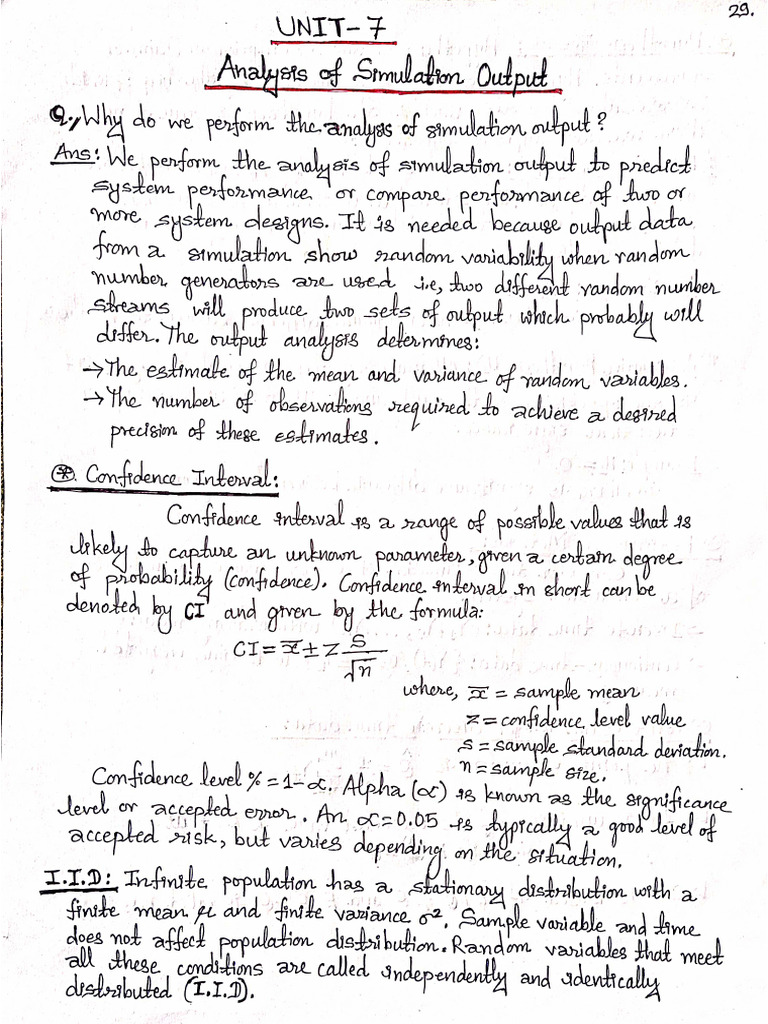 29.
UNIT-7
Analysis of Simulation Output
Q., Why do we perform the analysis of simulation output?
Ans: We perform the analysis of simulation output to predict
system performance or compare performance of two or
more system designs. It is needed because output data
from a simulation show random variability when random
number generators are used i.e, two different random number
streams will produce two sets of output which probably will
differ. The output analysis determines:
→ The estimate of the mean and variance of random variables.
→ The number of observations required to achieve a desired
precision of these estimates.
⊛. Confidence Interval:
Confidence interval is a range of possible values that is
likely to capture an unknown parameter, given a certain degree
of probability (confidence). Confidence interval in short can be
denoted by CI and given by the formula:
CI = x̄ ± Z S/√n
where, x̄ = sample mean
z = confidence level value
s = sample standard deviation.
n = sample size.
Confidence level % = 1-α. Alpha (α) is known as the significance
level or accepted error. An α=0.05 is typically a good level of
accepted risk, but varies depending on the situation.
I.I.D: Infinite population has a stationary distribution with a
finite mean μ and finite variance σ². Sample variable and time
does not affect population distribution. Random variables that meet
all these conditions are called independently and identically
distributed (I.I.D).